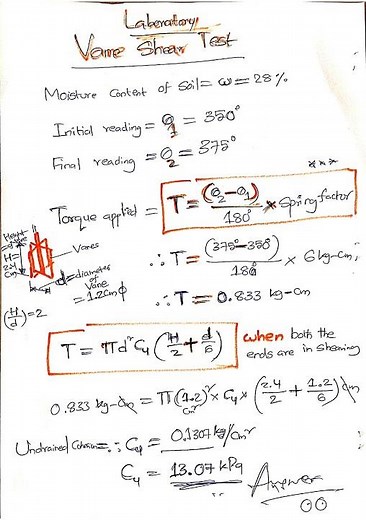 Laboratory
Vane Shear Test
Moisture Content of Soil = ω = 28%
Initial reading = θ₁ = 350°
Final reading = θ₂ = 375°
***
Torque applied = T = (θ₂-θ₁)/180° × Spring factor
∴ T = (375°-350°)/180° × 6 kg-cm
∴ T = 0.833 kg-cm
Height
H =
2.4
cm
Vanes
d = diameter
of
Vane
= 1.2cm ϕ
(H/d) = 2
T = πd² Cu (H/2 + d/6) when both the
ends are in shearing
0.833 kg-cm = π(1.2)² cm² × Cu × (2.4/2 + 1.2/6) cm
Undrained Cohesion = ∴ Cu = 0.1307 kg/cm²
Cu = 13.07 kPa Answer